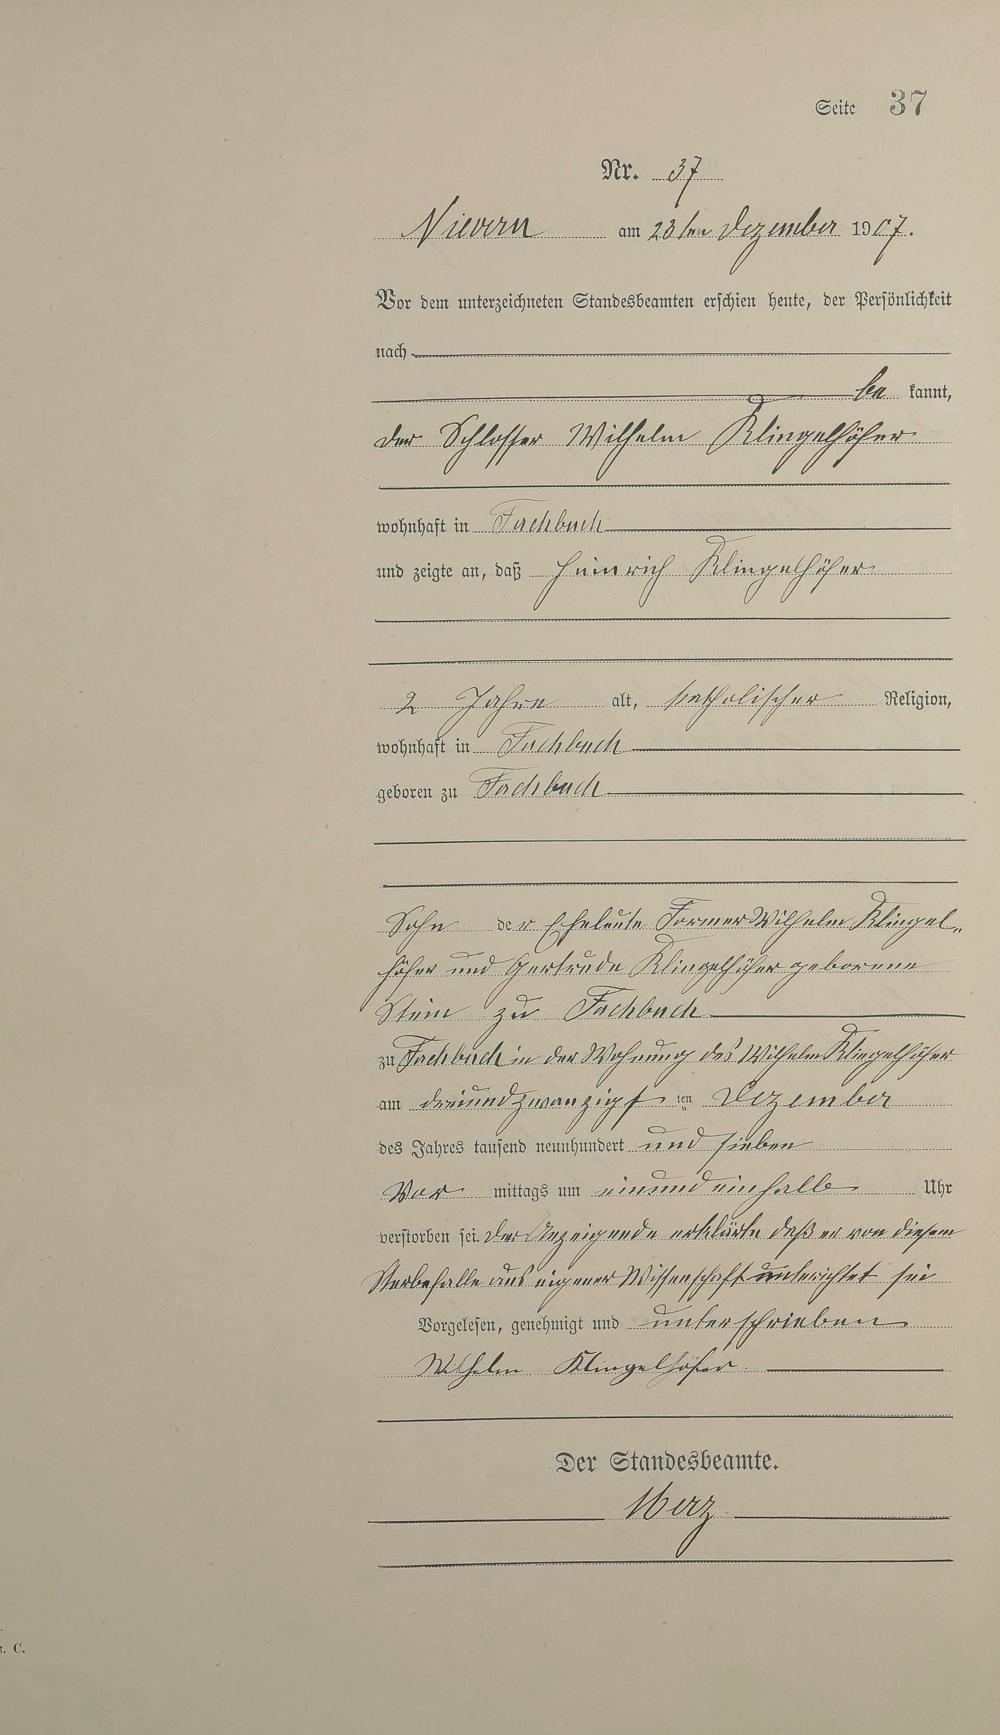 Seite 37
Nr. 37
Nievern am 23ten Dezember 1907.
Vor dem unterzeichneten Standesbeamten erschien heute, der Persönlichkeit
nach
be kannt,
der Schlosser Wilhelm Klingelhöfer
wohnhaft in Fachbach
und zeigte an, daß Heinrich Klingelhöfer
2 Jahre alt, katholischer Religion,
wohnhaft in Fachbach
geboren zu Fachbach
Sohn der Eheleute Former Wilhelm Klingel„
höfer und Gertrude Klingelhöfer geborene
Stein zu Fachbach
zu Fachbach in der Wohnung des Wilhelm Klingelhöfer
am dreiundzwanzigsten Dezember
des Jahres tausend neunhundert und sieben
Vor mittags um einundeinhalb Uhr
verstorben sei. Der Anzeigende erklärte daß er von diesem
Sterbefalle aus eigener Wissenschaft unterichtet sei
Vorgelesen, genehmigt und unterschrieben
Wilhelm Klingelhöfer.
Der Standesbeamte.
Merz
. C.